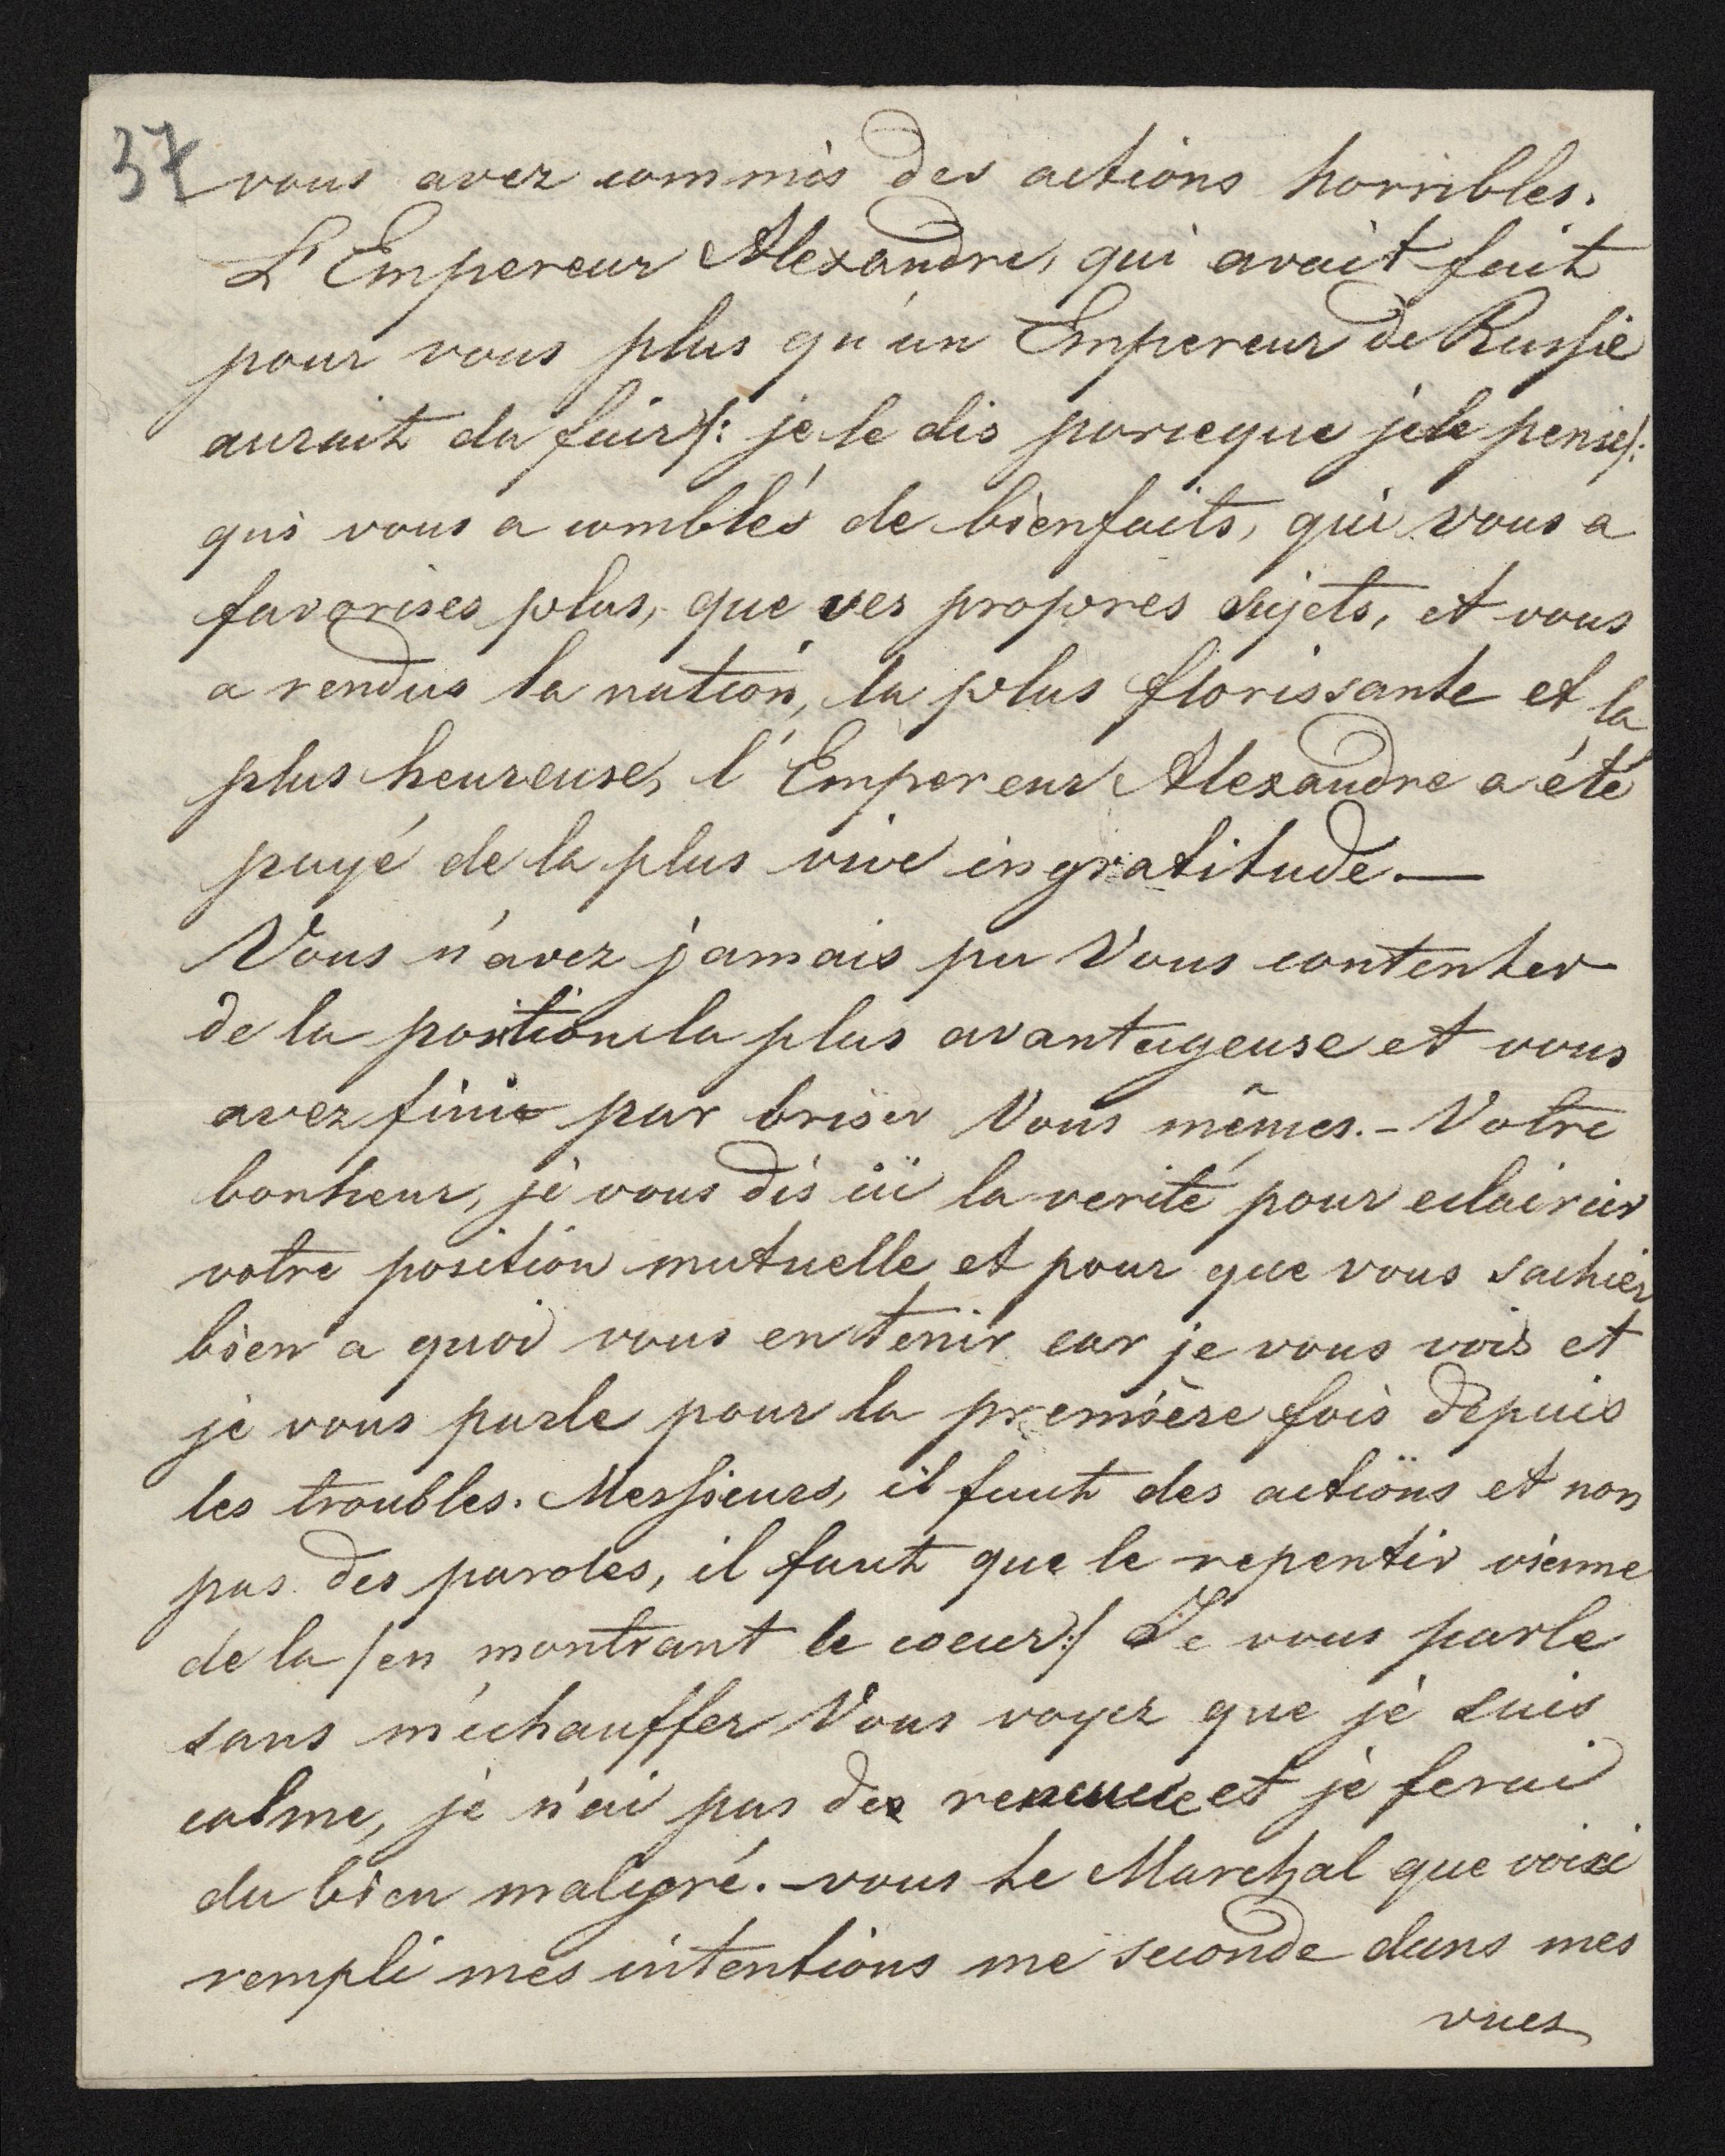 37
vous avez commis des actions horribles.
L'Empereur Alexandre, qui avait fait
pour vous plus qu'un Empereur de Russie
aurait du fair/: je le dis parceque je le pense/:
qui vous a comblés de bienfaits, qui vous a
favorises plus, que ses propres sujets, et vous
a rendus la nation, la plus florissante et la
plus heureuse, l'Empereur Alexandre a été
payé de la plus vive ingratitude.—
Vous n'avez jamais pu Vous contenter
de la position la plus avantageuse et vous
avez fini par briser Vous mêmes.- Votre
bonheur, je vous dis ici la verité pour eclaircir
votre position mutuelle et pour que vous sachiez
bien a quoi vous en tenir car je vous vois et
je vous parle pour la première fois depuis
les troubles. Messieurs, il faut des actions et non
pas des paroles, il faut que le repentir vienne
de la /en montrant le coeur:/ Je vous parle
sans m'échauffer Vous voyez que je suis
calme, je n'ai pas de et je ferai
du bien maligré.- vous le Marchal que voici
rempli mes intentions me seconde dans mes
vues